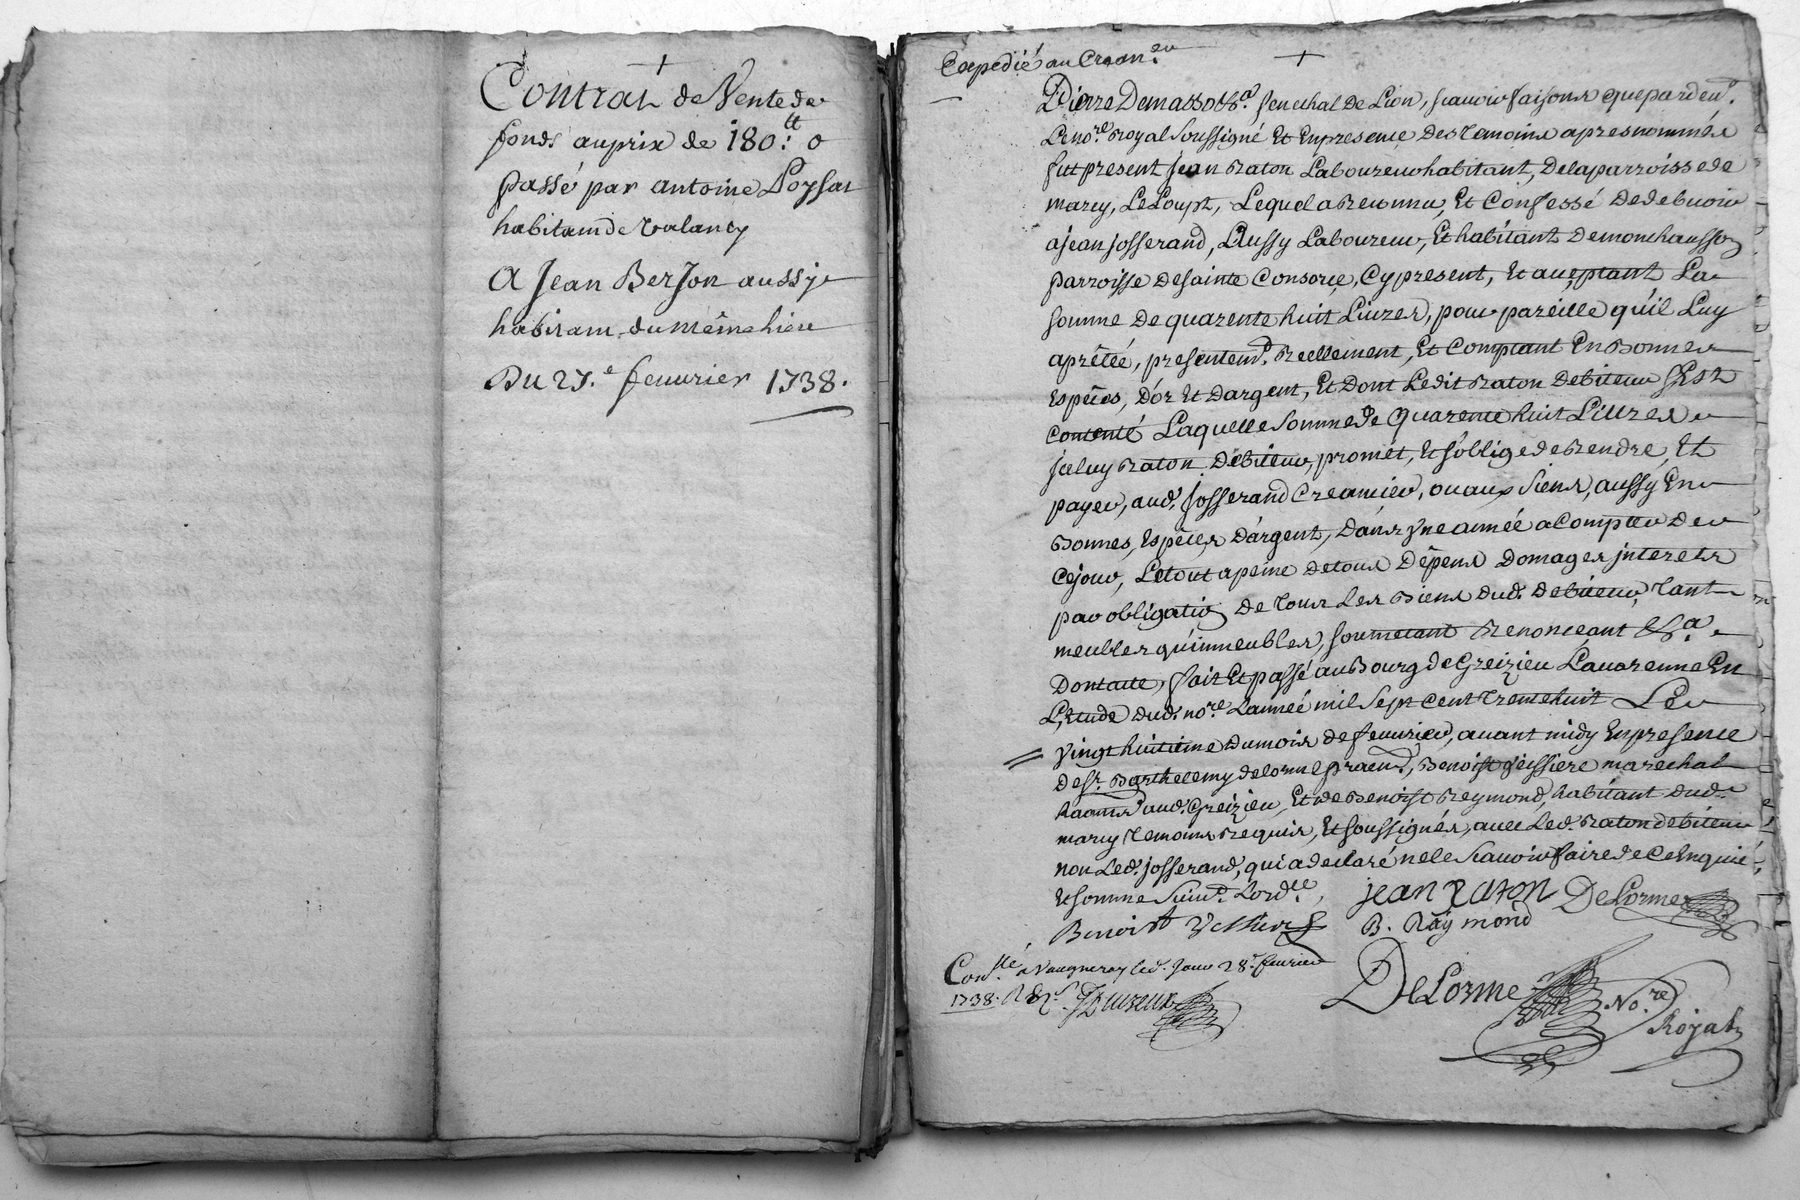 Contrat de Vente de
fonds au prix de 180.tt 0
passé par antoine Loysat
habitant de Valancy
A Jean Berjon aussy
habitant du même lieu
Du 27.e feuurier 1738.
Expedié au Crean.er
Pierre Demasso &a. senechal de Lion, scauoir faisons que pardeut.
Le no.re Royal Soussigné Et En presence Des Temoins apres nommés
fut present jean Raton Laboureur habitant, De la parroisse de
marcy, Le Loupt, Lequel a Reconnu, Et Confessé De debuoir
a jean josserand, Aussy Laboureur, Et habitant De monchausson
parroisse De sainte Consorce, Cy present, Et aceptant La
somme De quarente huit Liures, pour pareille qu'il Luy
a prêtée, presentem.t Reellement, Et Comptant En Bonnes
Espêces, D'or Et D'argent, Et Dont Ledit Raton Debiteur s'Est
Contenté Laquelle Somme de Quarente huit Liures
jceluy Raton Débiteur, promêt, Et s'oblige de Rendre, Et
payer, aud. josserand Creancier, ou aux Siens, aussy En
Bonnes, Espêces D'argent, Dans Vne année a Compter De
Ce jour, Le tout a peine De tous Dêpens Domages jnterets
par obligation De Tous Les Biens dud. Debiteur, Tant
meubles qu'immeubles, soumetant Renonceant &a.
Dont acte, fait Et passé au Bourg de Greizieu La uarenne En
L'Etude dud. no.re L'année mil Sept Cent Trente huit Le
Vingt huitième Du mois de feuurier, auant midy En presence
De sr. Barthelemy delorme praen, Benoist Veissiere marechal
aud. Greizieu, Et de Benoist Reymond, habitant dud.
marcy Temoins Requis, Et soussignés, auec Led. Raton debiteur
non Led. josserand, qui a declaré ne le Scauoir faire de Ce Enquis,
Et somme Suiu.t L'ord.ce,
jean Raton DeLorme
Benoist B. Raymond
Con.llé a Vaugneray led. Jour 28.e feurier
1738. R
DeLorme No.re
Royal